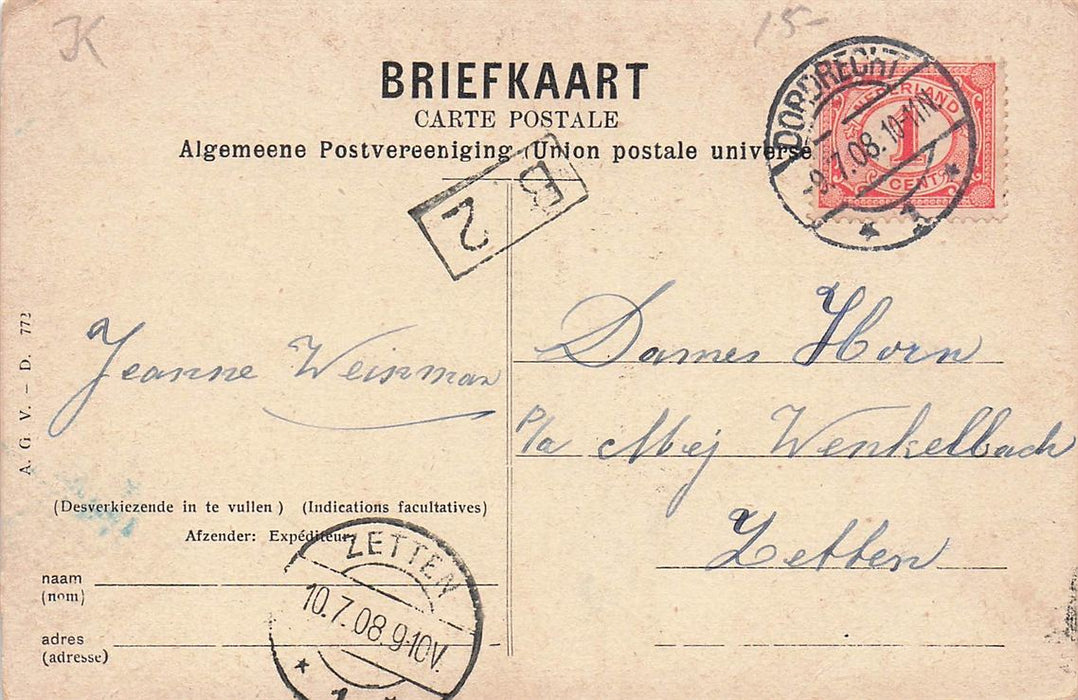 JK
15-
BRIEFKAART
CARTE POSTALE
Algemeene Postvereeniging (Union postale universe
DORDRECHT
9.7.08.10-11N.
1
NEDERLAND
1
CENT
B
2
A. G. V. – D. 772
Jeanne Weisman
Dames Horn
p/a Mej Wenkelbach
Zetten
(Desverkiezende in te vullen) (Indications facultatives)
Afzender: Expéditeur,
naam
(nom)
adres
(adresse)
ZETTEN
10.7.08.9-10V.
1